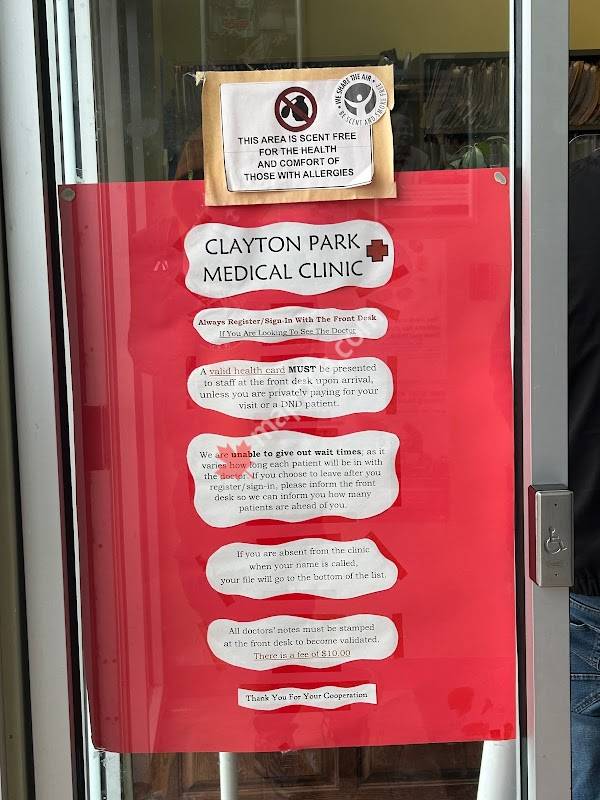 WE SHARE THE AIR
BE SCENT AND SMOKE FREE
THIS AREA IS SCENT FREE
FOR THE HEALTH
AND COMFORT OF
THOSE WITH ALLERGIES
CLAYTON PARK
MEDICAL CLINIC
Always Register/Sign-In With The Front Desk
If You Are Looking To See The Doctor
A valid health card MUST be presented
to staff at the front desk upon arrival,
unless you are privately paying for your
visit or a DND patient.
We are unable to give out wait times, as it
varies how long each patient will be in with
the doctor. If you choose to leave after you
register/sign-in, please inform the front
desk so we can inform you how many
patients are ahead of you.
If you are absent from the clinic
when your name is called,
your file will go to the bottom of the list.
All doctors' notes must be stamped
at the front desk to become validated.
There is a fee of $10.00
Thank You For Your Cooperation